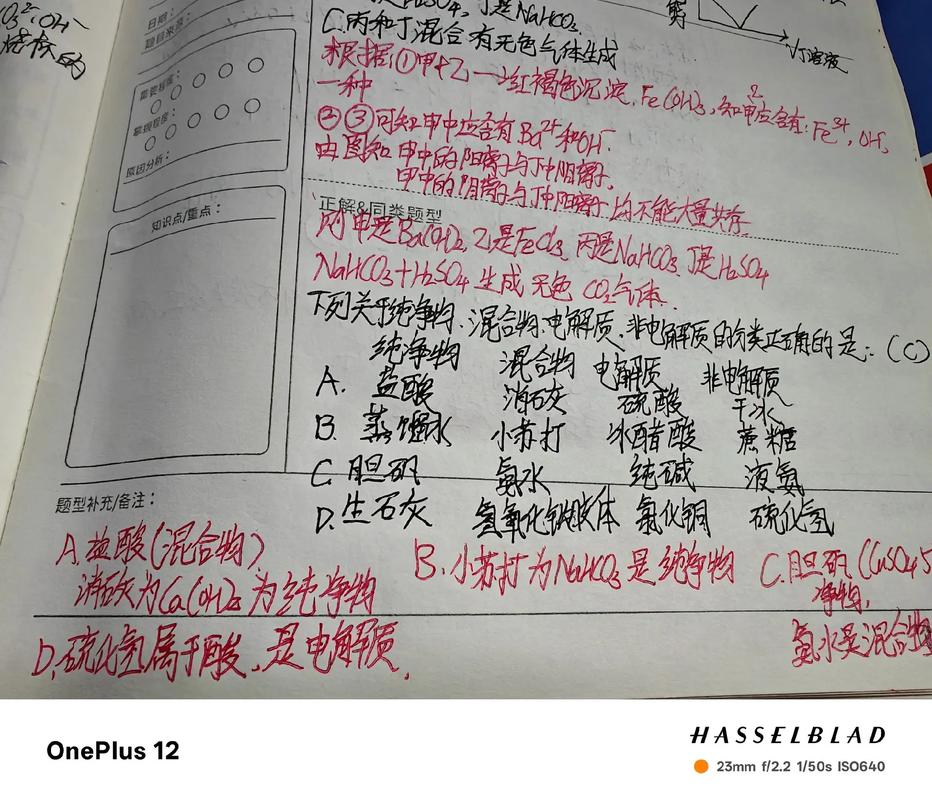 O₃²⁻.OH⁻
日期：
题目来源：
重要程度：
掌握程度：
原因分析：
知识点/重点：
SO₄, 丁是NaHCO₃.
C.丙和丁混合有无色气体生成
丁溶液
根据①甲+乙→红褐色沉淀, Fe(OH)₃, 知甲乙应含有: Fe³⁺, OH⁻,
一种
②③可知甲中应含有Ba²⁺和OH⁻.
由图知 甲中的阳离子与丁中阴离子,
甲中的阴离子与丁中阳离子均不能大量共存.
正解&同类题型
则甲是Ba(OH)₂, 乙是FeCl₃, 丙是NaHCO₃, 丁是H₂SO₄
NaHCO₃+H₂SO₄ 生成无色 CO₂气体.
下列关于纯净物、混合物、电解质、非电解质的分类正确的是: (C)
纯净物 混合物 电解质 非电解质
A. 盐酸 消石灰 硫酸 干冰
B. 蒸馏水 小苏打 冰醋酸 蔗糖
C. 胆矾 氨水 纯碱 液氨
D. 生石灰 氢氧化铁胶体 氯化铜 硫化氢
题型补充/备注：
A. 盐酸(混合物)
消石灰为Ca(OH)₂为纯净物
B. 小苏打为NaHCO₃是纯净物
C. 胆矾 (CuSO₄·5
净物,
氨水是混合物
D. 硫化氢属于酸、是电解质.
OnePlus 12
HASSELBLAD
23mm f/2.2 1/50s ISO640